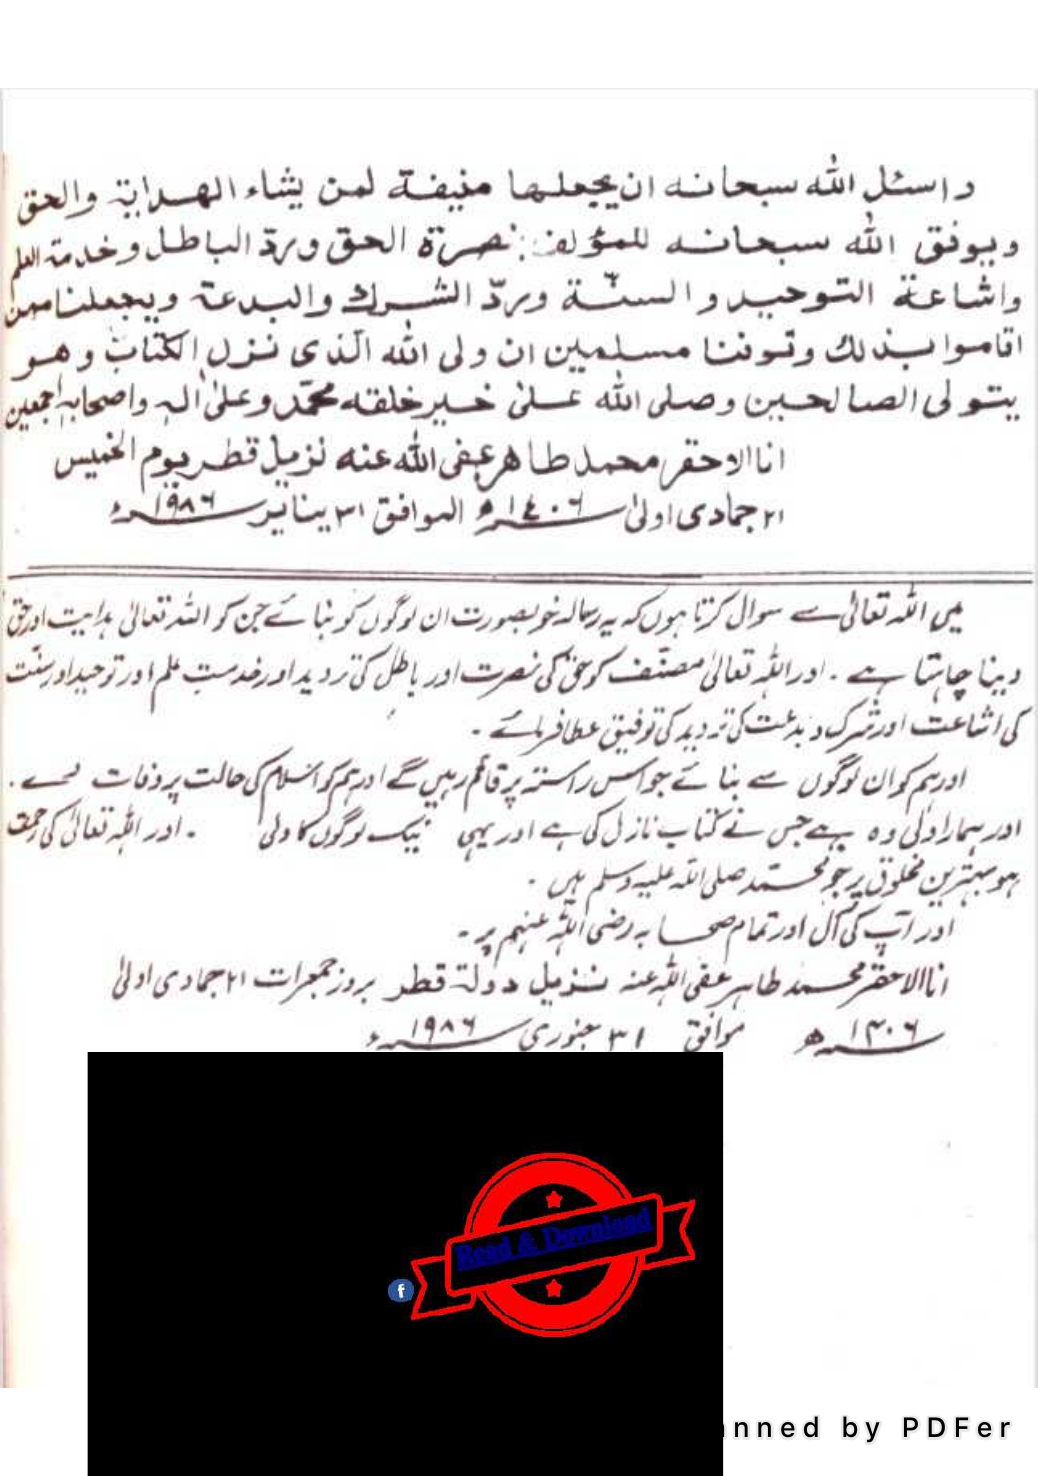 واسئل الله سبحانه ان يجعلها منيفة لمن يشاء الهداية والحق
ويوفق الله سبحانه للمؤلف نصرة الحق وردّ الباطل وخدمة العلم
واشاعة التوحيد والسنّة وردّ الشرك والبدعة ويجعلنا ممن
اقاموا بذلك وتوفنا مسلمين ان ولى الله الّذى نزل الكتاب وهو
يتولى الصالحين وصلى الله على خير خلقه محمّد وعلىٰ اٰلہ واصحابہ اجمعين
انا الاحقر محمد طاهر عفى الله عنه نزيل قطر يوم الخميس
٢١ جمادى اولىٰ ١٤٠٦ھ الموافق ٣١ يناير ١٩٨٦ء
میں اللہ تعالیٰ سے سوال کرتا ہوں کہ یہ رسالہ خوبصورت ان لوگوں کو بنائے جن کو اللہ تعالیٰ ہدایت اور حق
دینا چاہتا ہے ۔ اور اللہ تعالیٰ مصنّف کو حق کی نصرت اور باطل کی تردید اور خدمت علم اور توحید اور سنّت
کی اشاعت اور شرک و بدعت کی تردید کی توفیق عطا فرمائے ۔
اور ہم کو ان لوگوں سے بنائے جو اس راستہ پر قائم رہیں گے اور ہم کو اسلام کی حالت پر وفات دے ۔
اور ہمارا ولی وہ ہے جس نے کتاب نازل کی ہے اور یہی نیک لوگوں کا ولی ۔ اور اللہ تعالیٰ کی رحمت
ہو بہترین مخلوق پر جو محمّد صلی اللہ علیہ وسلم ہیں ۔
اور آپ کی آل اور تمام صحابہ رضی اللہ عنہم پر ۔
انا الاحقر محمد طاہر عفی اللہ عنہ نزیل دولۃ قطر بروز جمعرات ۲۱ جمادی اولیٰ
۱۴۰۶ھ موافق ۳۱ جنوری ۱۹۸۶ء
Read & Download
f
nned by PDFer